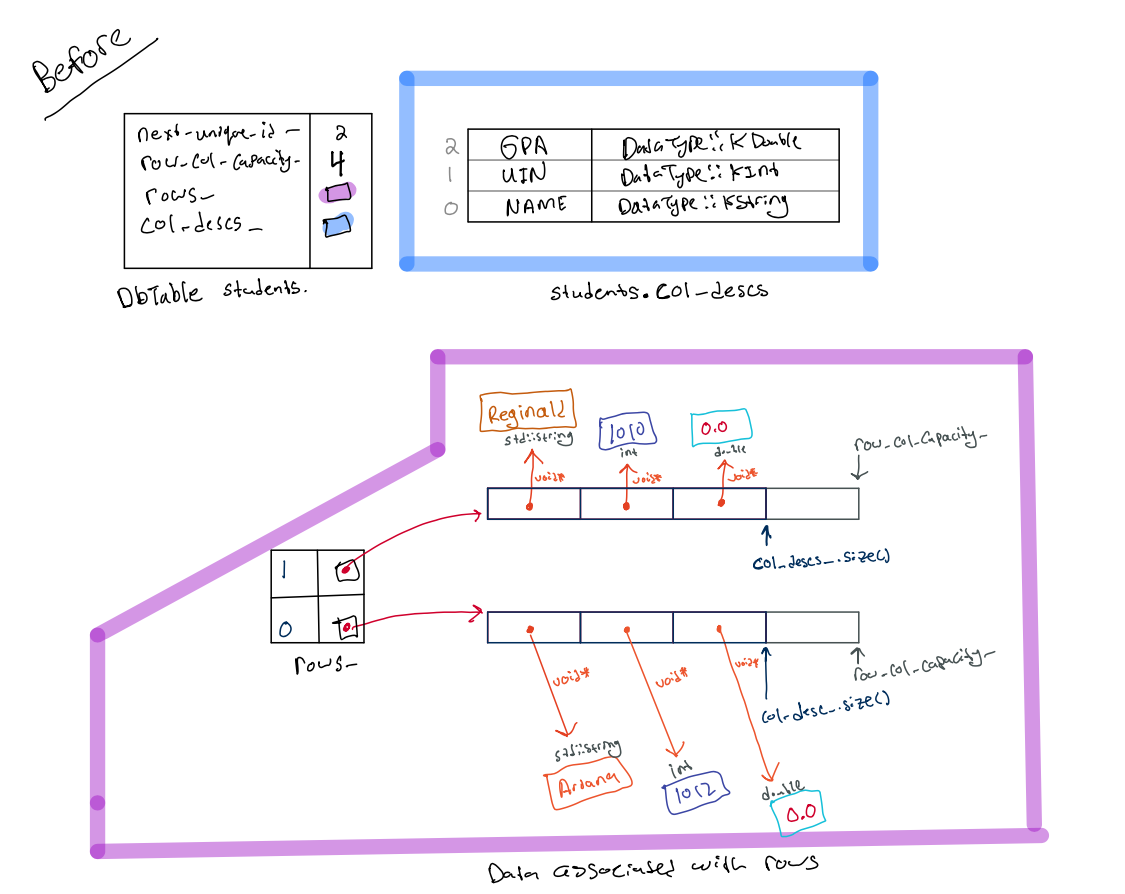 Before
next_unique_id_ 2
row_col_capacity_ 4
rows_
col_descs_
DbTable students.
2 GPA DataType::KDouble
1 UIN DataType::KInt
0 NAME DataType::KString
students.col_descs
Reginald
std::string
1010
int
0.0
double
void*
void*
void*
row_col_capacity_
col_descs_.size()
1
0
rows_
void*
void*
void*
row_col_capacity_
col_desc_.size()
std::string
Ariana
int
1012
double
0.0
Data associated with rows